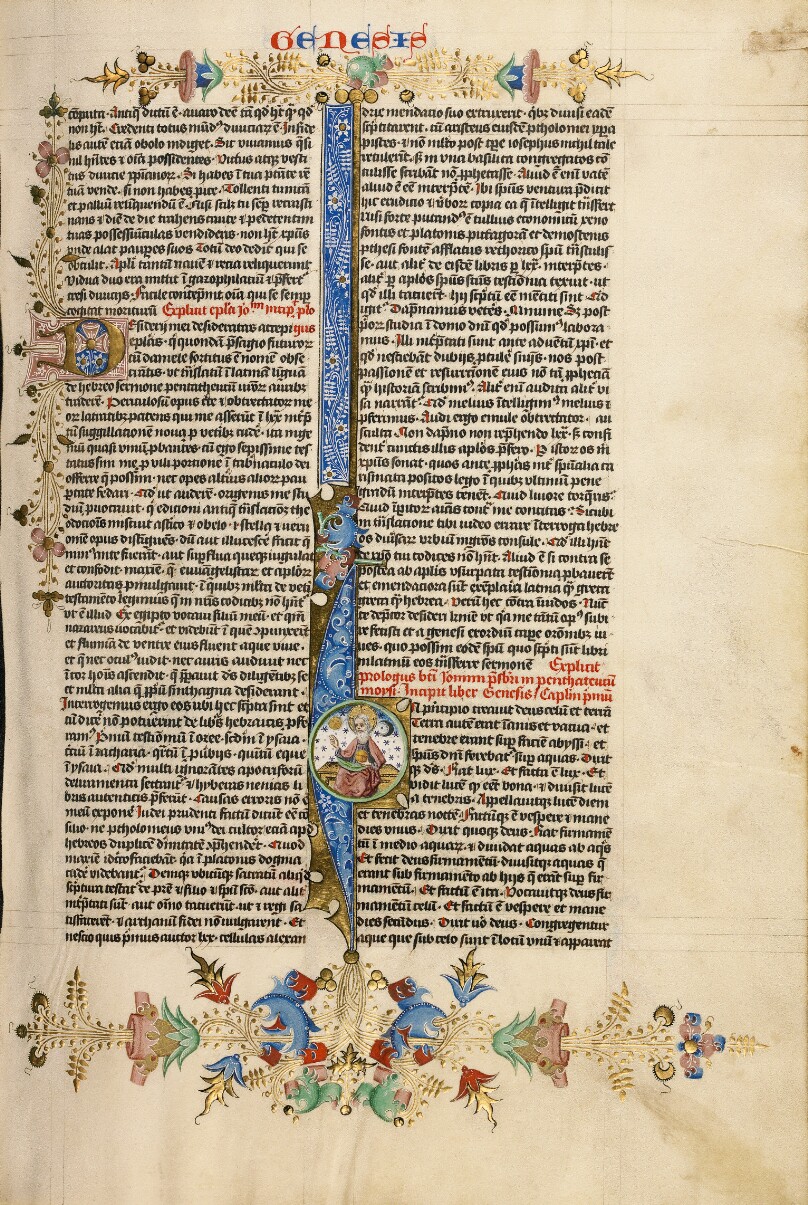 GENESIS
computa. Antiquū dictū ē. avaro deē tā qd hꝫ qͣ qd
non hꝫ. Credenti totus mūdꝰ divitiaꝝ ē. Infide
lis autē etiā obolo indiget. Sic vivamus qͣsi
nil hn̄tes ⁊ oīa possidentes. Victus atqꝫ vesti
tus divitie xp̄ianoꝝ. Si habes ī tua ptāte rē
tuā vende. si non habes ꝓice. Tollenti tunicā
et palliū relinquendū ē.
nans ⁊ diē de die trahens caute ⁊ pedetentim
tuas possessiūculas vendideris. non hꝫ xp̄us
unde alat paupes suos Totū deo dedit qui se
obtulit. Apl̄i tantū navē ⁊ recia reliquerunt
Vidua duo era mittit ī gazophilatiū ⁊ p̄fert
cresi divitijs. Facile contēpnit oīa qui se semp
cogitat moriturū Explicit epl̄a
Desiderij mei desideratas accepi
epl̄as. qͥ quondā p̄sagio futuroꝝ
cū daniele sortitus ē nomē obse
crātis. ut trāslatū ī latinā līguā
de hebreo sermone pentatheucū nr̄oꝝ auribꝫ
traderē. Periculosū opus
or latratibꝫ patens qui me asserūt ī lxx
tū suggillationē nova ꝓ vetibꝫ cudē. ita īnge
niū quasi vinū ꝓbantes. cū ego sepissime tes
tatus sim me ꝓ vili portione ī tabnaculo dei
offerre q̄ possim. nec opes altius alioꝝ pau
ꝑtate fedari. Qd ut auderē. origenis me stu
diū ꝓvocavit. qͥ editioni antiq̄ trāslationē the
odotionis miscuit astico ⁊ obelo. ꝉ stella ⁊ veru
omē opus distigues. dū aut illucescē facit q̄
minꝰ ante fuerāt. aut suꝑflua queqꝫ iugulat
et confodit. maxie. q̄ evvāgelistaꝝ et aplōꝝ
auctoritas ꝓmulgavit. ī quibꝫ mlta de veti
testamēto legimus q̄ in nr̄is codicibꝫ nō hn̄t
ut ē illud Ex egipto vocavi filiū meū. et qm̄
nazareus vocabit. et videbūt ī quē ꝯpunxerūt
et flumīa de ventre eius fluent aque vive.
et q̄ nec oculꝰ vidit. nec auris audivit nec
ī cor hoīs ascendit. q̄ ꝑparavit dꝰ diligētibꝫ se
et mlta alia q̄ ꝓpriū sinthagma desiderant.
Interrogemus ergo eos ubi hec scripta sint et
cū dicē nō potuerint de libris hebraicis
ramꝰ. Primū testiōniū ī osee. scdm ī ysaia.
tciū ī zacharia. qͣrtū ī ꝓvbijs. quintū eque
ī ysaia. Qd multi ignorātes apocriforū
deliramenta sectant ⁊ hyberas nenias li
bris autenticis p̄ferūt. Causas erroris nō ē
meū exponē Iudei prudenti factū dicūt cō
silio ne ptholomeus uniꝰ dei cultor eciā apd
hebreos duplicē divitatē ꝯphendet. Quod
maxie idcirco faciebāt qia ī platonis dogma
cadē videbant. Deniqꝫ ubicūqꝫ sacratū aliqd
sc̄ptura testat de p̄re ⁊ filio ⁊ spū sc̄o. aut alit
int̄ptati sūt. aut oīno tacuerūt. ut ⁊ regi sa
tisfacerēt. ⁊ archanū fidei nō vulgarent. Et
nescio quis p̄mus auctor lxx. cellulas alexan
drie mendatio suo extruxerit. qͥbꝫ divisi eadē
sc̄ptitarent. cū aristeus eiusdē ptholomei
pistes. ⁊ nō mlto post tp̄e iosephus nichil tale
retulerit. sꝫ in una basilica congregatos cō
tulisse scribāt nō ꝓphetasse. Aliud ē eni vatē
aliud ē eē interp̄tē. Ibi spūs ventura p̄dicit
hic eruditio ⁊ v̄boꝝ copia ea q̄ ītelligit trāsfert
nisi forte putandꝰ ē tullius economicū xeno
fontis et platonis pictagorā et demostenis
ꝓthesifontē afflatus rethorico spū trāstulis
se. aut alit̄ de eisdē libris ꝑ lxx. interp̄tes.
alit̄ ꝑ aplōs spūs sc̄us testiōnia texuit. ut
qd illi tacuerūt. hij sc̄ptū eē mētiti sint. Qd
igit̄ Dāpnamus veteres. Minime Sꝫ post
pͥoꝝ studia ī domo dn̄i qd possumꝰ labora
mus. Illi int̄ptati sunt ante adventū xp̄i. et
qd nesciebāt dubijs ꝓtulē sniīs. nos post
passionē et resurrectionē eius nō tā ꝓphetiā
qͣ historiā scribimꝰ. Alit̄ eni audita alit̄ vi
sa narrāt. Qd melius ītelligimꝰ melius ⁊
ꝓferimus. Audi ergo emule obtrectator. au
sculta. Non dāpno non reprehendo lxx. sꝫ confi
dent̄ cunctis illis aplōs p̄fero. P istoꝝ os m
xp̄us sonat. quos ante ꝓphās int̄ spūalia ca
rismata positos lego ī quibꝫ ultimū pene
gradū interp̄tes tenet. Quid livore torqueris
Quid īꝑitoꝝ aīos cont̄ me concitas. Sicubi
in trāslatione tibi videor errare īterroga hebre
os diversaꝝ urbiū mgros consule. Qd illi hn̄t
de xp̄o tui codices nō hn̄t. Aliud ē si contra se
postea ab aplis usurpata testiōnia ꝓbaverūt
et emendatiora sūt exēplaria latina qͣ greca
greca qͣ hebrea. Verū hec cōtra īvidos. Nūc
te dep̄cor desideri kme ut qͥa me tātū opꝰ subi
re fecisti et a genesi exordiū capē orōnibꝫ iu
ves. quo possim eodē spū quo sc̄pti sūt libri
in latinū eos trāsferre sermonē Explicit
prologus bti Ieronimi p̄sbri in penthateucū
moysi. Incipit liber Genesis Caplm p̄mū
In pͥncipio creavit deus celū et terrā
Terra autē erat īanis et vacua. et
tenebre erant sup faciē abyssi. et
spūs dn̄i ferebat̄ sup aquas. Dixit
qꝫ dꝰ. Fiat lux. Et facta ē lux. Et
vidit lucē qͥ eēt bona. ⁊ divisit lucē
a tenebris. Appellavitqꝫ lucē diem
et tenebras noctē. Factūqꝫ ē vespere ⁊ mane
dies unus. Dixit quoqꝫ deus. Fiat firmamē
tū ī medio aquaꝝ. ⁊ dividat aquas ab aqͥs
Et fecit deus firmamētū. divisitqꝫ aquas q̄
erant sub firmamēto ab hijs q̄ erāt sup fir
mamētū. Et factū ē ita. Vocavitqꝫ deus fir
mamētū celū. Et factū ē vespere et mane
dies secūdus. Dixit v̄o deus. Congregentur
aque que sub celo sunt ī locū unū ⁊ appareat